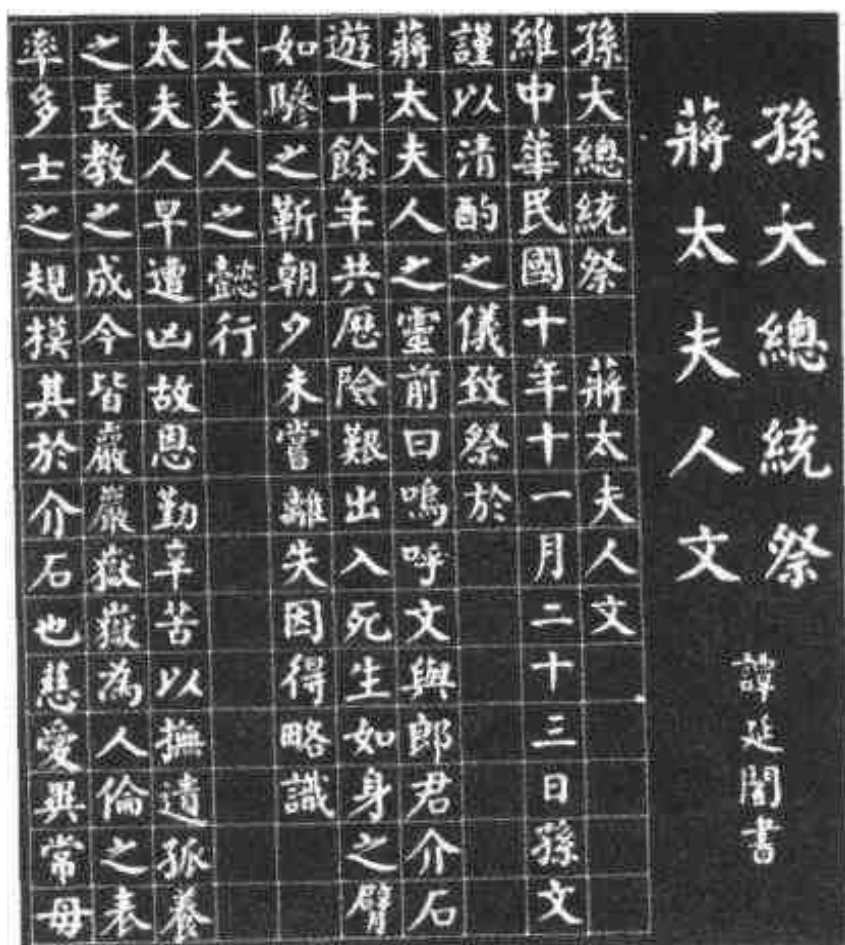 孫大總統祭
蔣太夫人文
譚延闓書
孫大總統祭 蔣太夫人文
維中華民國十年十一月二十三日孫文
謹以清酌之儀致祭於
蔣太夫人之靈前曰嗚呼文與郎君介石
遊十餘年共歷險艱出入死生如身之臂
如驂之靳朝夕未嘗離失因得略識
太夫人之懿行
太夫人早遭凶故恩勤辛苦以撫遺孤養
之長教之成今皆嚴嚴嶽嶽為人倫之表
率多士之規模其於介石也慈愛異常母